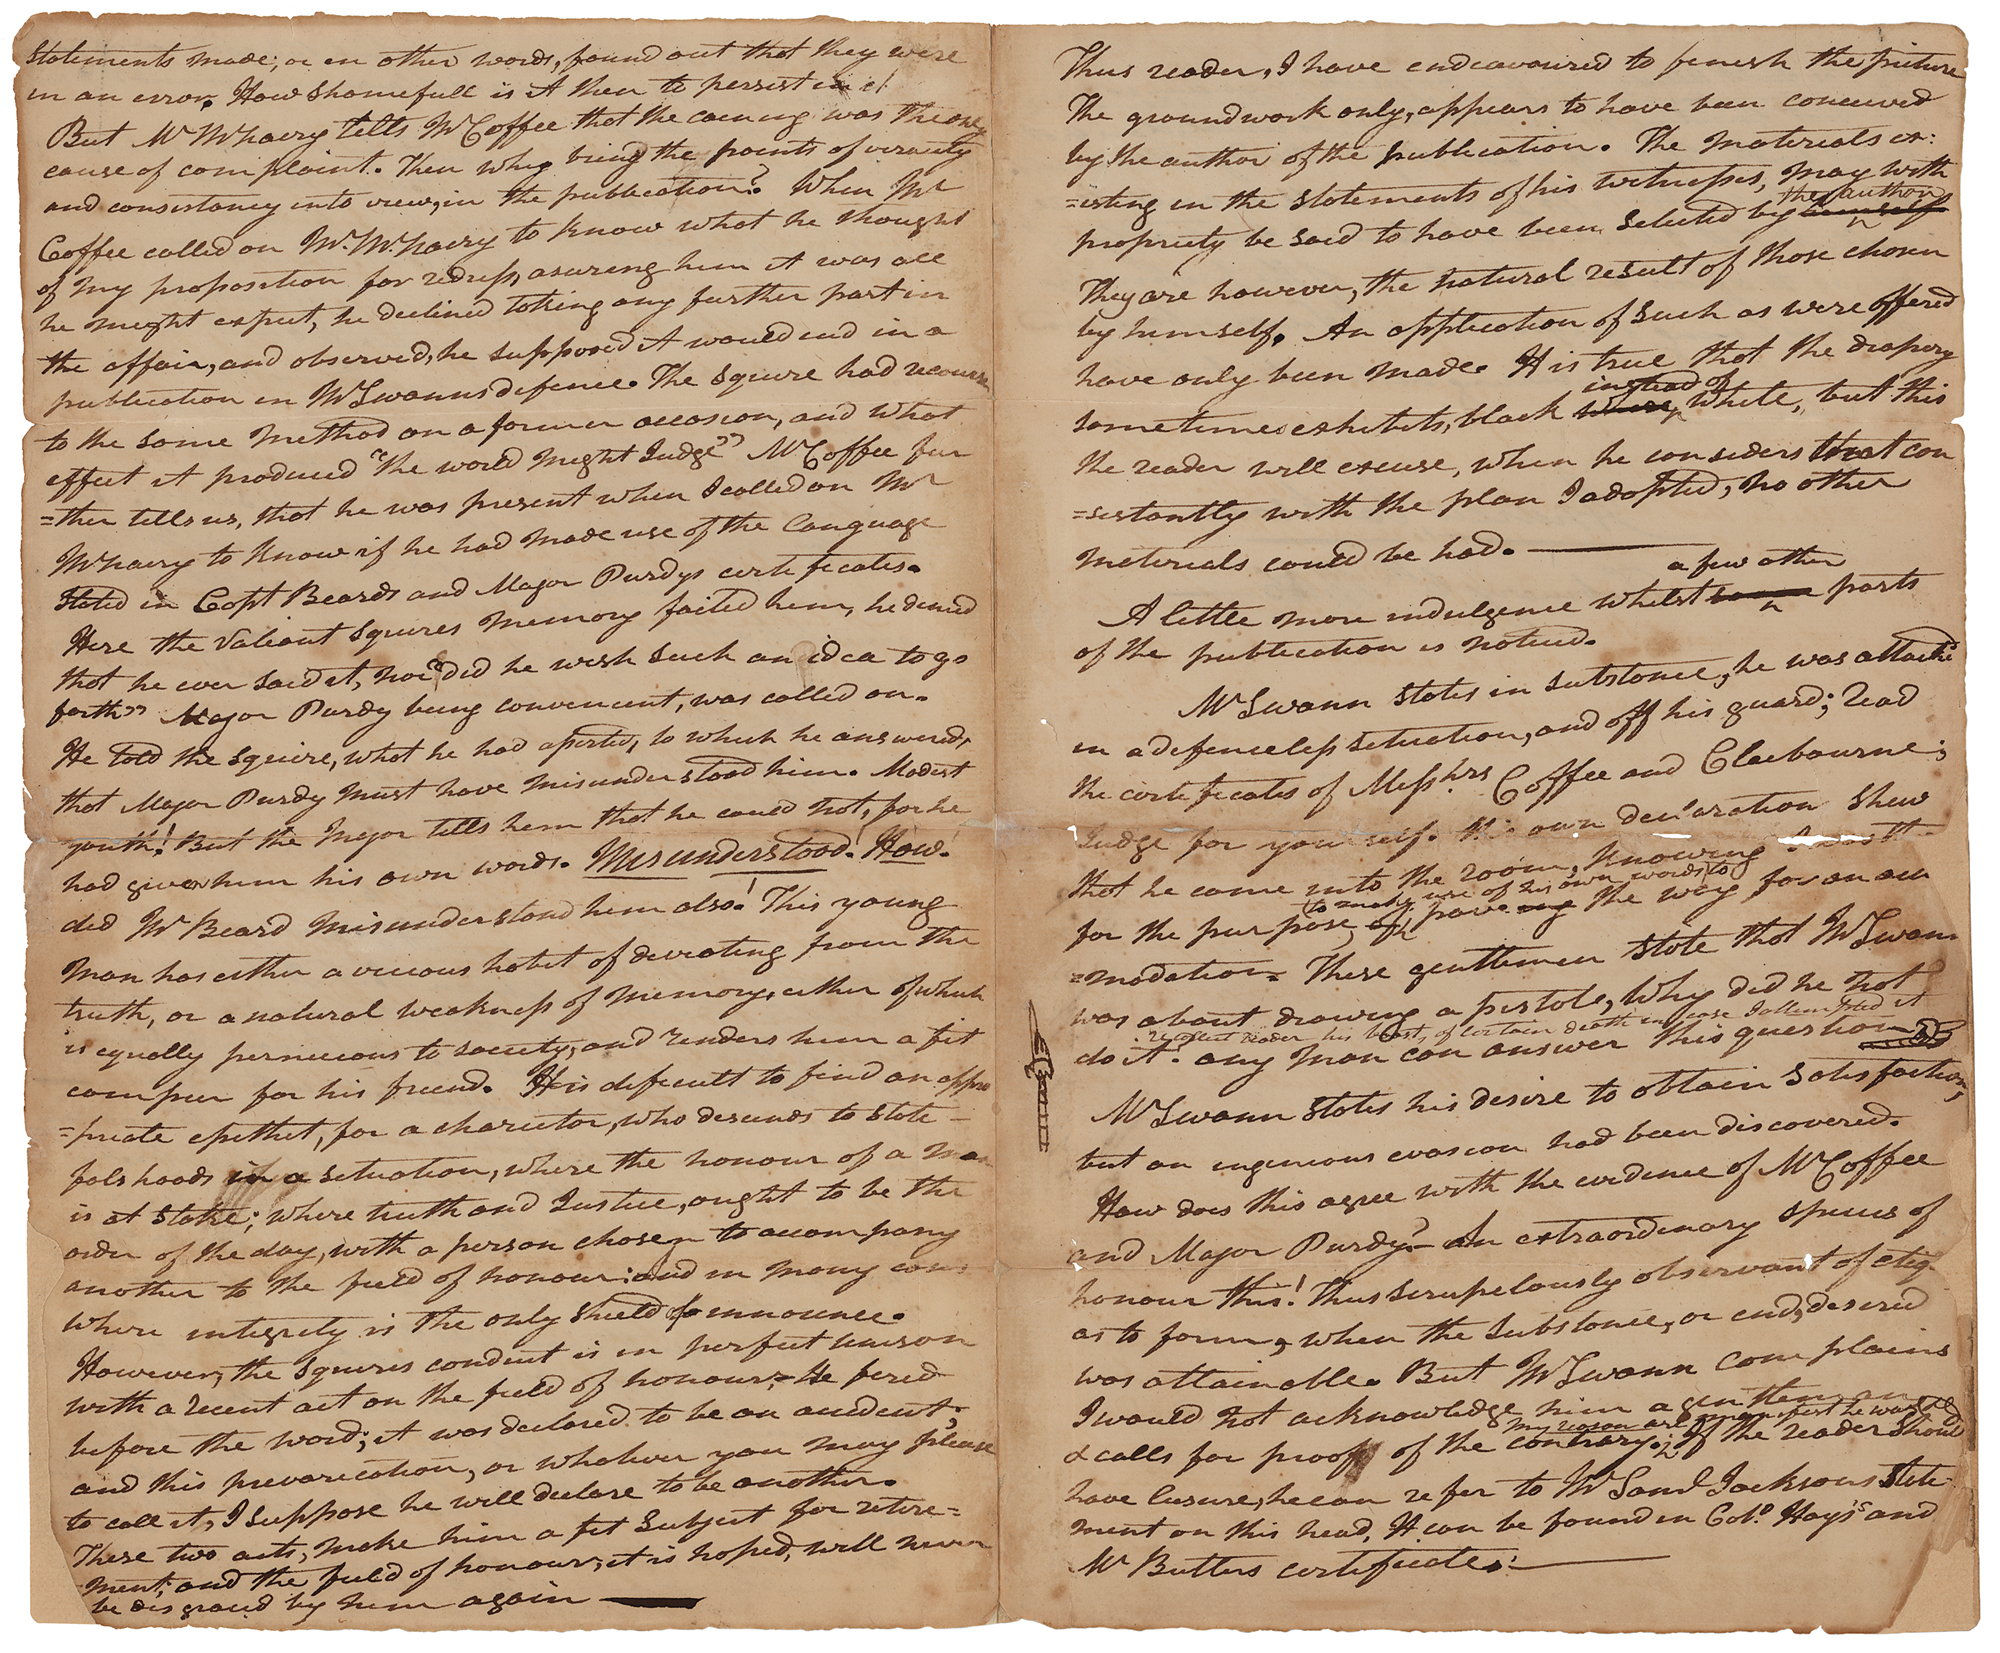 Statements made; or in other words, found out that they were
in an error. How shamefull is it then to persist in it
But Mr McNairy tells Mr Coffee that the caining was the only
cause of complaint. Then why bring the points of veracity
and consistancy into view, in the publication? When Mr
Coffee called on Mr. McNairy to know what he thought
of my proposition for redress, asureing him it was all
he might expect, he declined takeing any further part in
the affair, and observed, he supposed it would end in a
publication in Mr Swanns defence. The Squire had recourse
to the same method on a former occasion, and what
effect it produced "the world might Judge" Mr Coffee fur
=ther tells us, that he was present when I called on Mr
McNairy to know if he had made use of the language
Stated in Capt Beards and Major Purdys certificates.
Here the valiant Squires memory failed him, he denied
that he ever said it, nor "did he wish such an idea to go
forth" Major Purdy being convenient, was called on.
He told the Squire, what he had aserted, to which he answered,
that Major Purdy must have misunderstood him. Modest
youth! But the Major tells him that he could not, for he
had given him his own words. Misunderstood! How!
did Mr Beard misunderstand him also! This young
man has either a vicious habit of deviating from the
truth, or a natural weakness of memory, either of which
is equally pernicious to society, and renders him a fit
compeer for his friend. It is difficult to find an appro
=priate epithet, for a charector, who descends to state
falshoods in a situation, where the honour of a man
is at stake; where truth and Justice, ought to be the
order of the day, with a person chosen to accompany
another to the field of honour; and in many cases
where integrity is the only shield to innocence.
However, the Squires conduct is in perfect unison
with a recent act on the field of honour; He fired
before the word; it was declared to be an accident;
and this prevarication, or whatever you may please
to call it, I suppose he will declare to be another.
These two acts, make him a fit subject for retire=
ment; and the field of honour, it is hoped, will never
be disgraced by him again
Thus reader, I have endeavoured to finish the picture
The groundwork only, appears to have been conceived
by the author of the publication. The materials ex:
=isting in the statements of his witnesses, may with
the author
propriety be said to have been selected by himself
They are however, the natural result of those chosen
by himself. An application of such as were offered
have only been made. It is true that the drapery
instead of
sometimes exhibits, black white, but this
the reader will excuse, when he considers that con
=sistantly with the plan I adopted, no other
meterials could be had.
a few other
A little more indulgence whilst parts
of the publication is noticed.
Mr Swann states in substance, he was attackd
in a defenceless situation, and off his guard; read
the certificates of Messhrs Coffee and Claebourne;
Judge for yourself. His own declaration shew
that he came into the room, knowing
to make use of his own words to
for the purpose, of pave ing the way for an acc
=modation= These gentlemen state that Mr Swann
was about drawing a pistol, Why did he not
recolect reader his boast, of certain death in case I attempted it
do it. any man can answer this question
Mr Swann states his desire to obtain satisfaction,
but an ingenious evasion had been discovered.
How does this agree with the evidence of Mr Coffee
and Major Purdy? An extraordinary species of
honour this! Thus scrupelously observant of etiq
as to form, when the substance, or end, desired
was attainable. But Mr Swann complains
I would not acknowledge him a gentleman
my reason are he was not
& calls for proof of the contrary; If the reader should
have lusure, he can refer to Mr Saml Jacksons State
ment on this head, It can be found in Colo. Hay's and
Mr Butlers certificate.